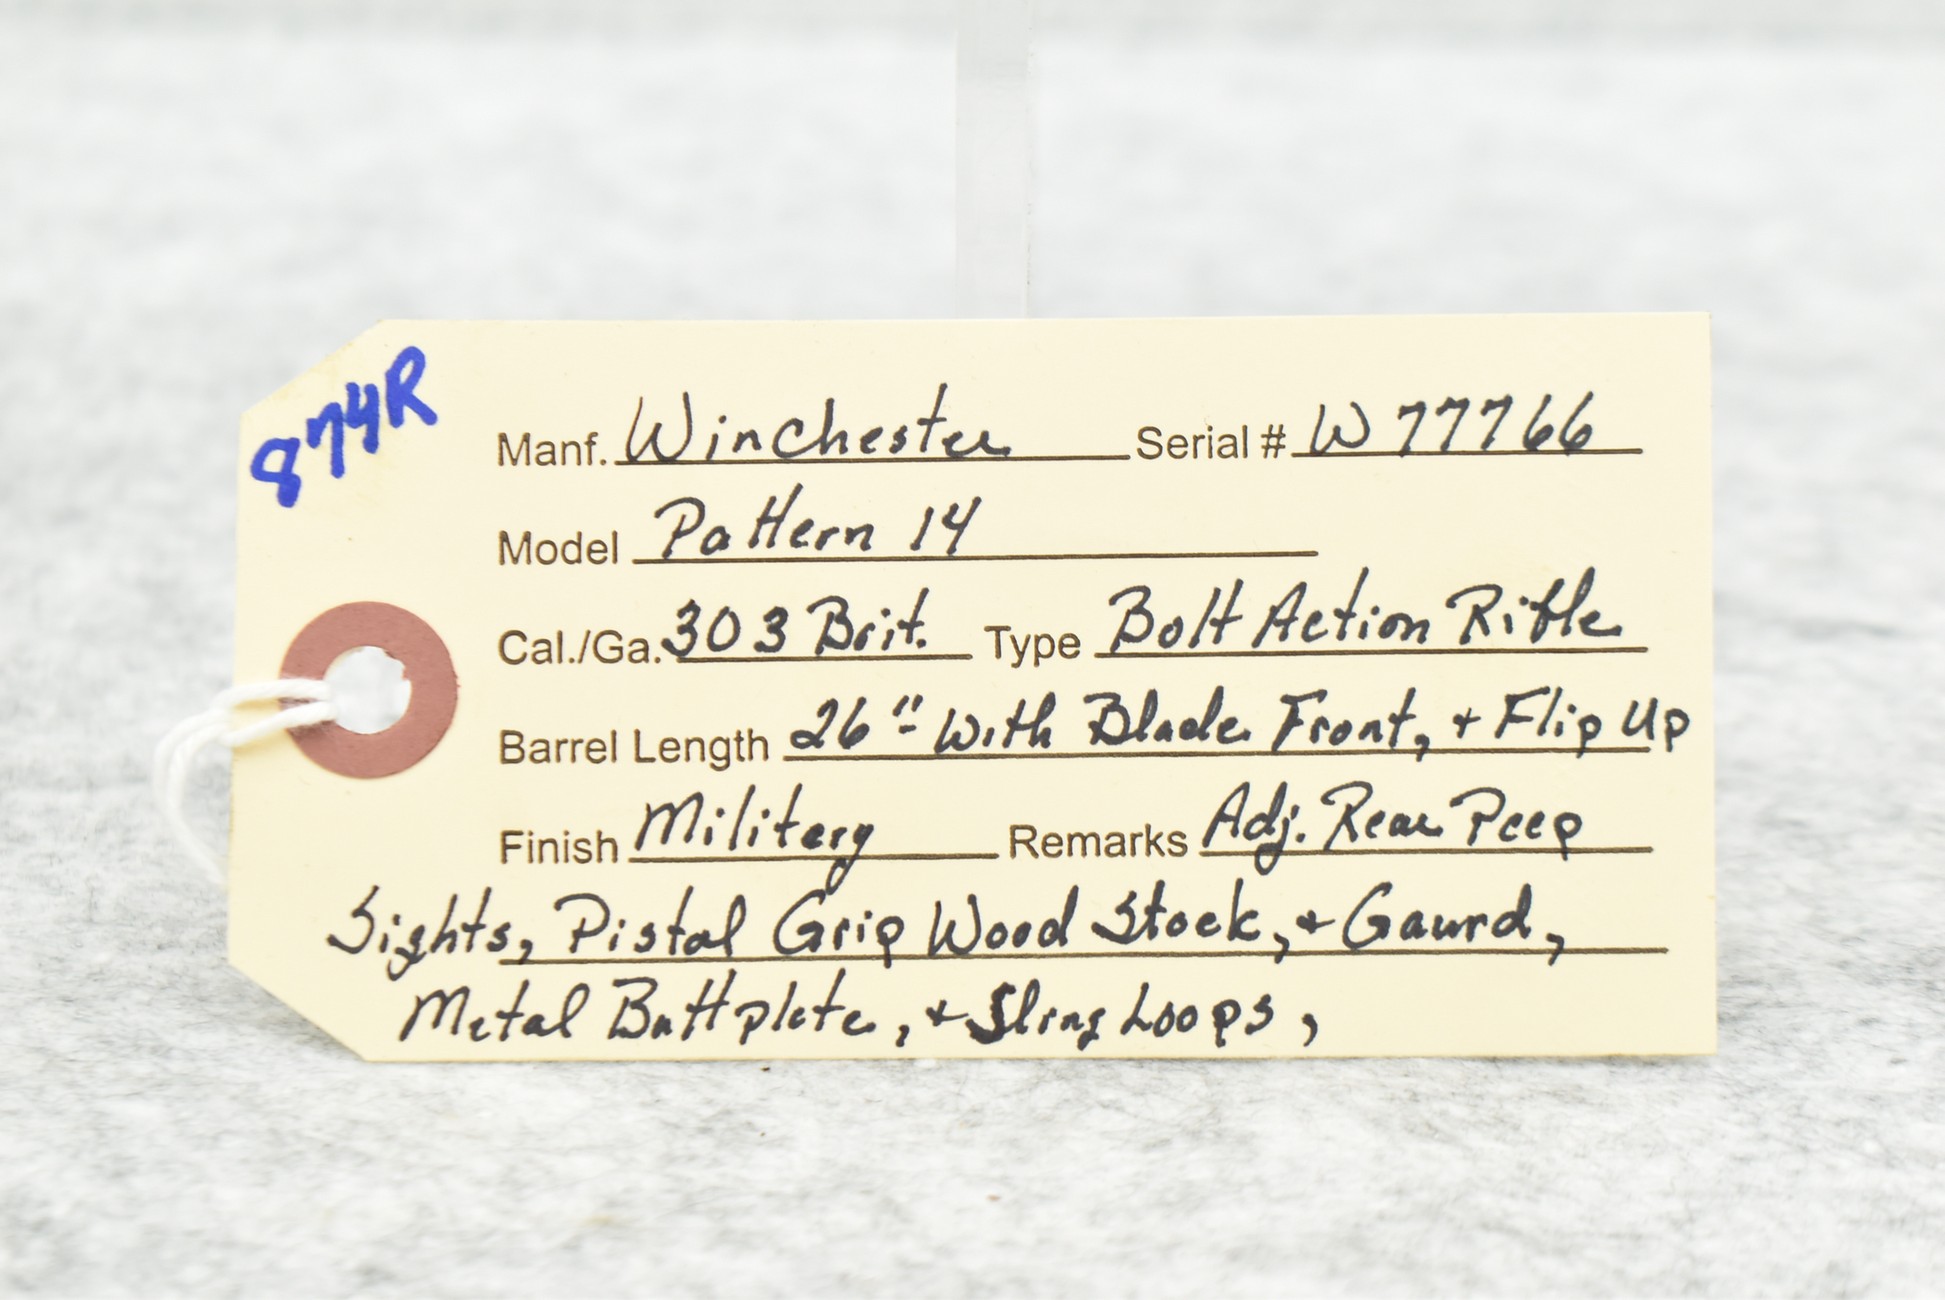 874R
Manf. Winchester Serial # W77766
Model Pattern 14
Cal./Ga. 303 Brit. Type Bolt Action Rifle
Barrel Length 26" with Blade Front, + Flip Up
Finish Military Remarks Adj. Rear Peep
Sights, Pistol Grip Wood Stock, + Gaurd,
Metal Buttplate, + Sling Loops,